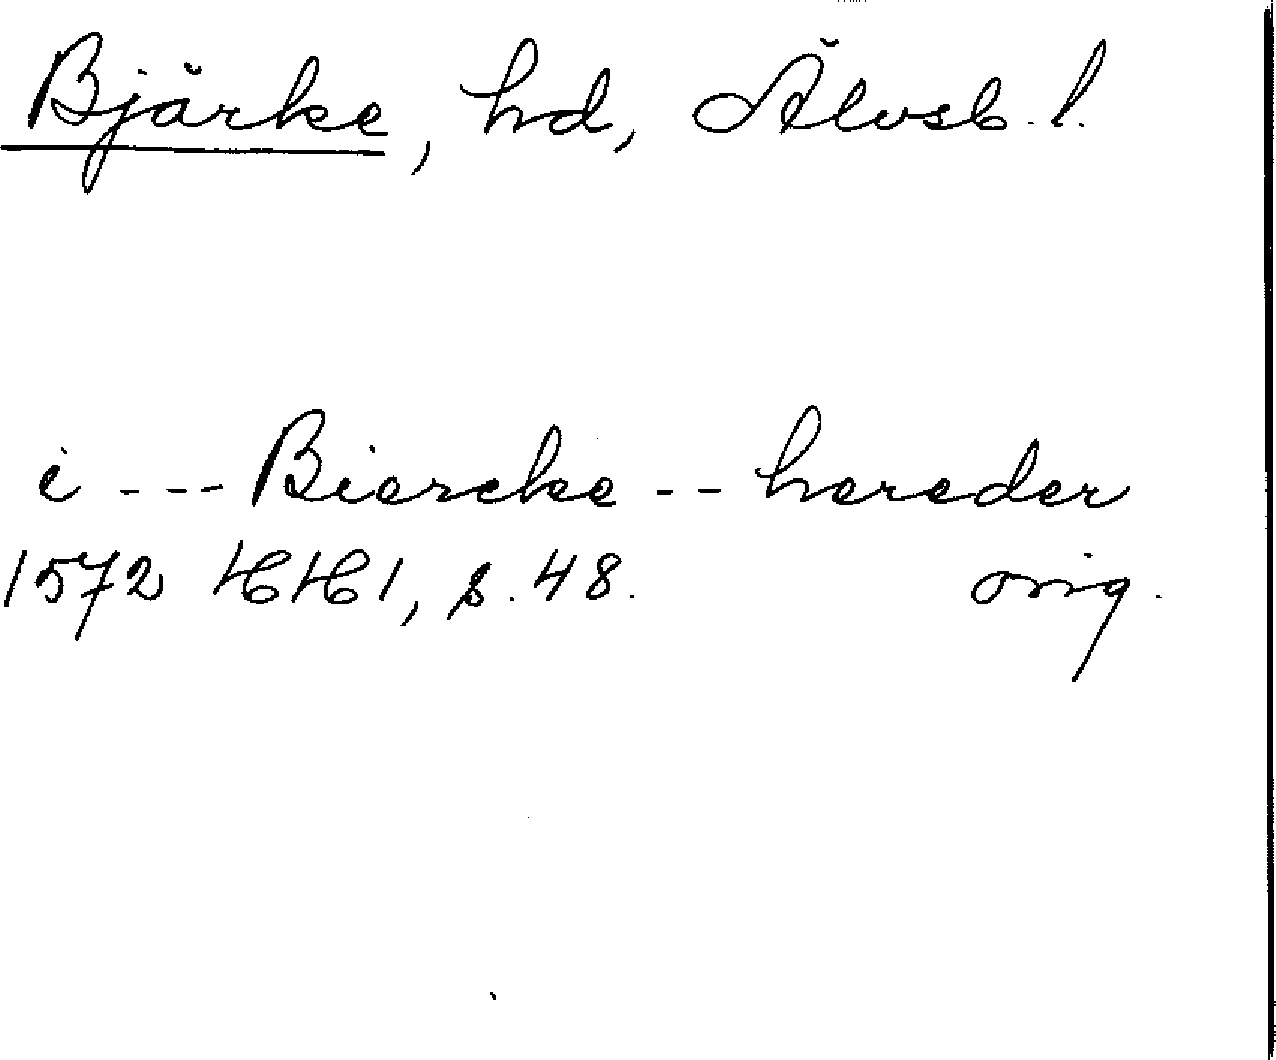 Bjärke, hd, Älvsb. l.
i --- Biercke -- hereder
1572 HH1, s. 48. orig.